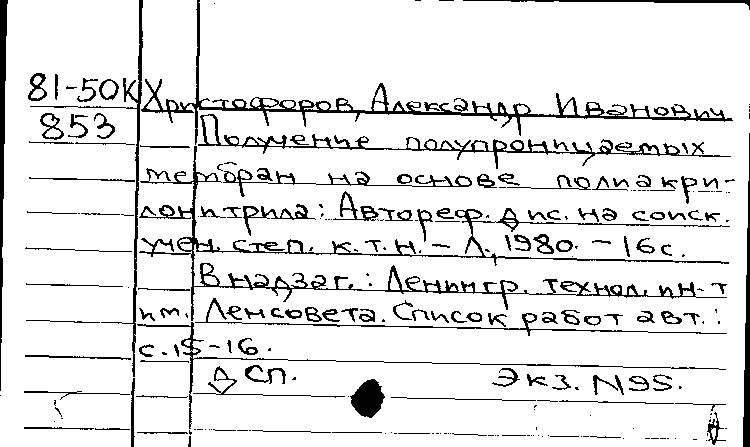 81-50К Христофоров, Александр Иванович
853 Получение полупроницаемых
мембран на основе полиакри-
лонитрила: Автореф. дис. на соиск.
учен. степ. к.т.н. – Л., 1980. – 16 с.
В надзаг.: Ленингр. технол. ин-т
им. Ленсовета. Список работ авт.:
с. 15-16.
ДСП. Экз. N95.